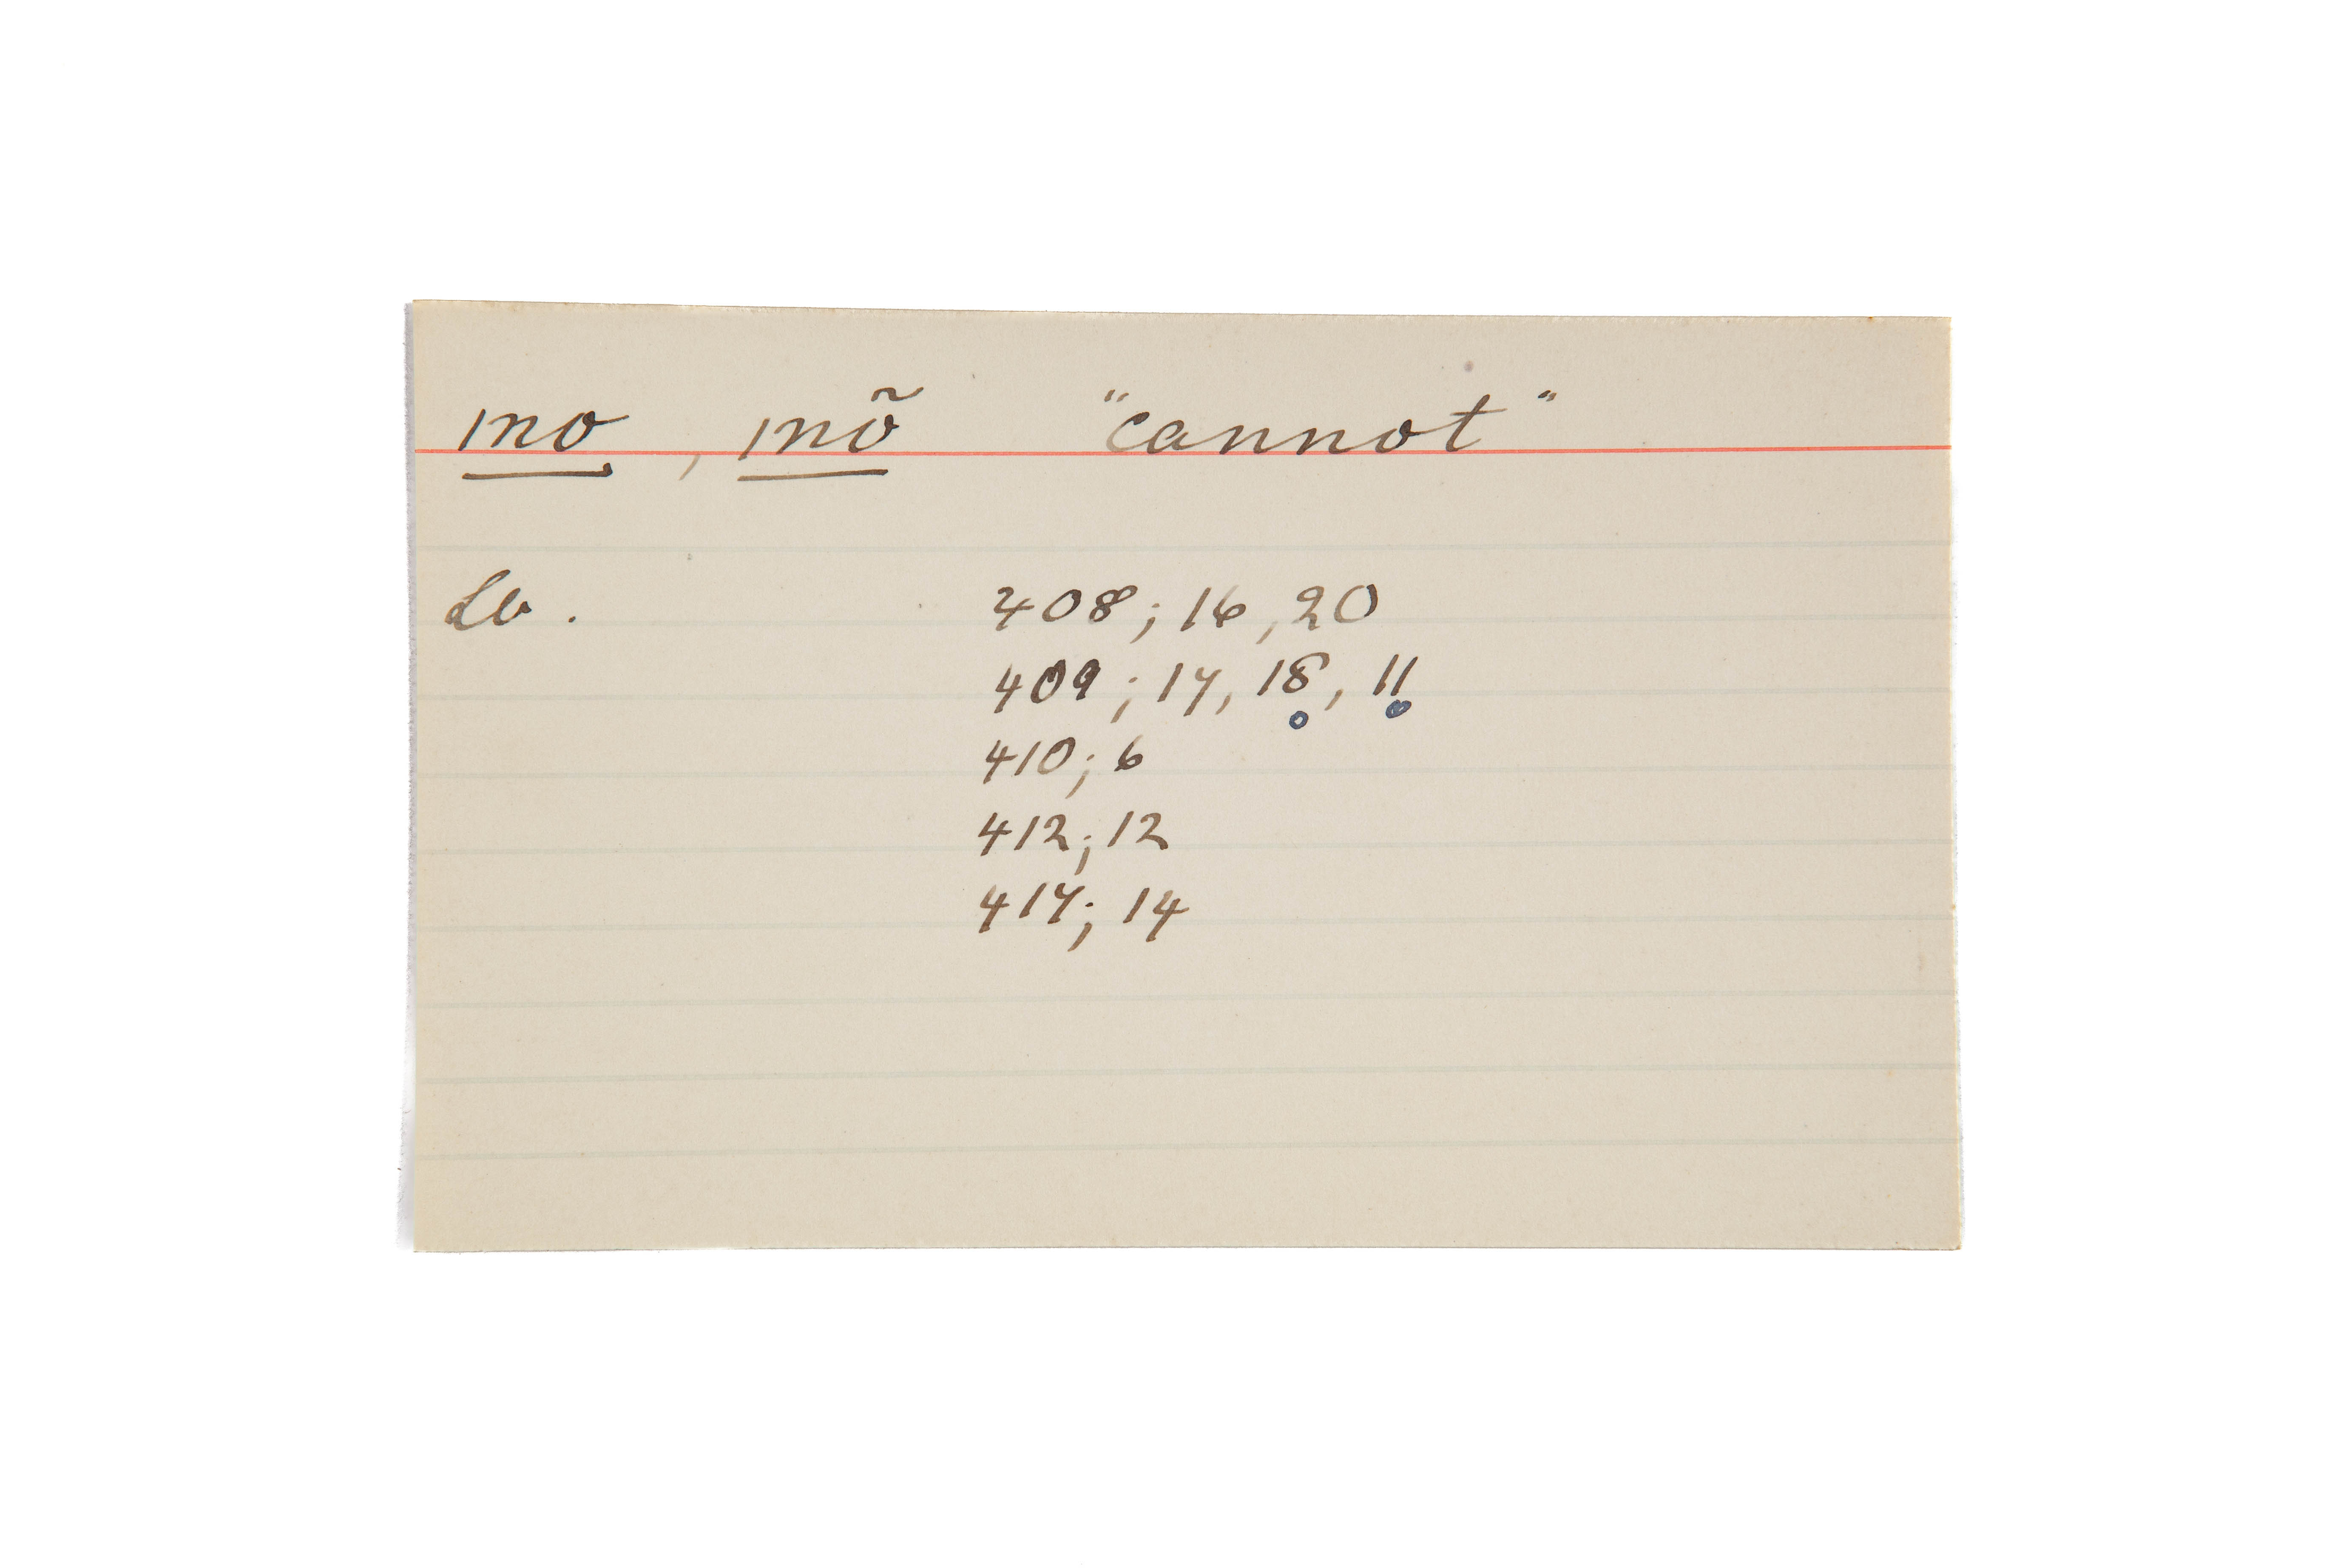 mo, mõ "cannot"
Lo. 408; 16, 20
409; 17, 18, 11
410; 6
412; 12
417; 14